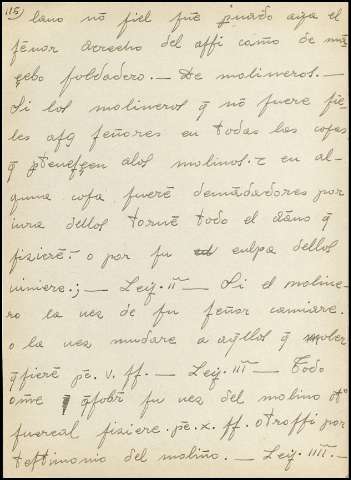 15)
lano nõ fiel fuẽ puado aya el
feñor derecho del affi camo de mã
çebo foldadero. — De molineros. —
Si los molineros q̃ nõ fuere fie-
les afg feñores en todas las cofas
q̃ ptenefçen alos molinos: τ en al-
guna cofa fuerẽ demãdadores por
iura dellos tornẽ todo el dãno q̃
fizierẽ o por fu culpa dellos
viniere.; — Leiy. II — Si el moline-
ro la vez de fu feñor camiare.
o la vez mudare a aq̃llos q̃ moler
q̃fierẽ pẽ. v. ff. — Leiy. III — Todo
oме q̃ q̃fobr fu vez del molino
fuercal fiziere. pẽ. x. ff. otroffi por
teftimonio del molino. — Leiy. IIII. —